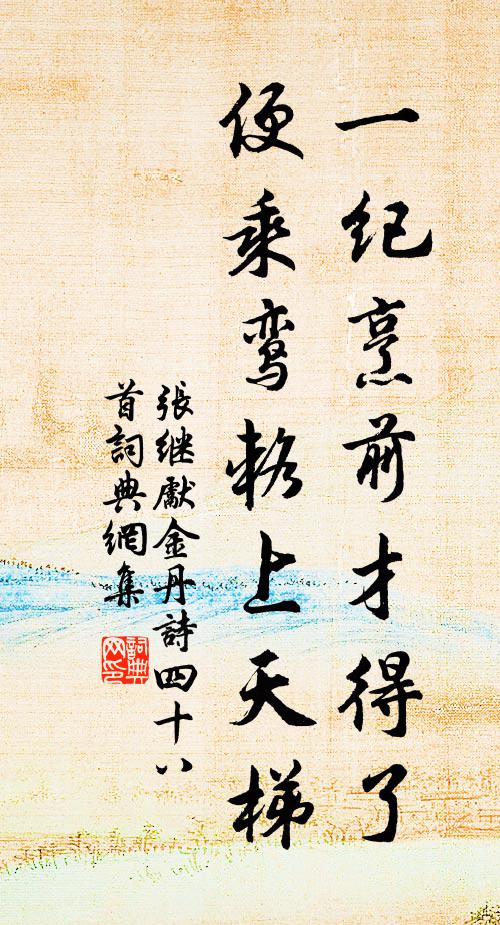 一纪烹前才得了
便乘鸾辂上天梯
張继獻金丹詩四十八
首詞典網集
詞典
网印